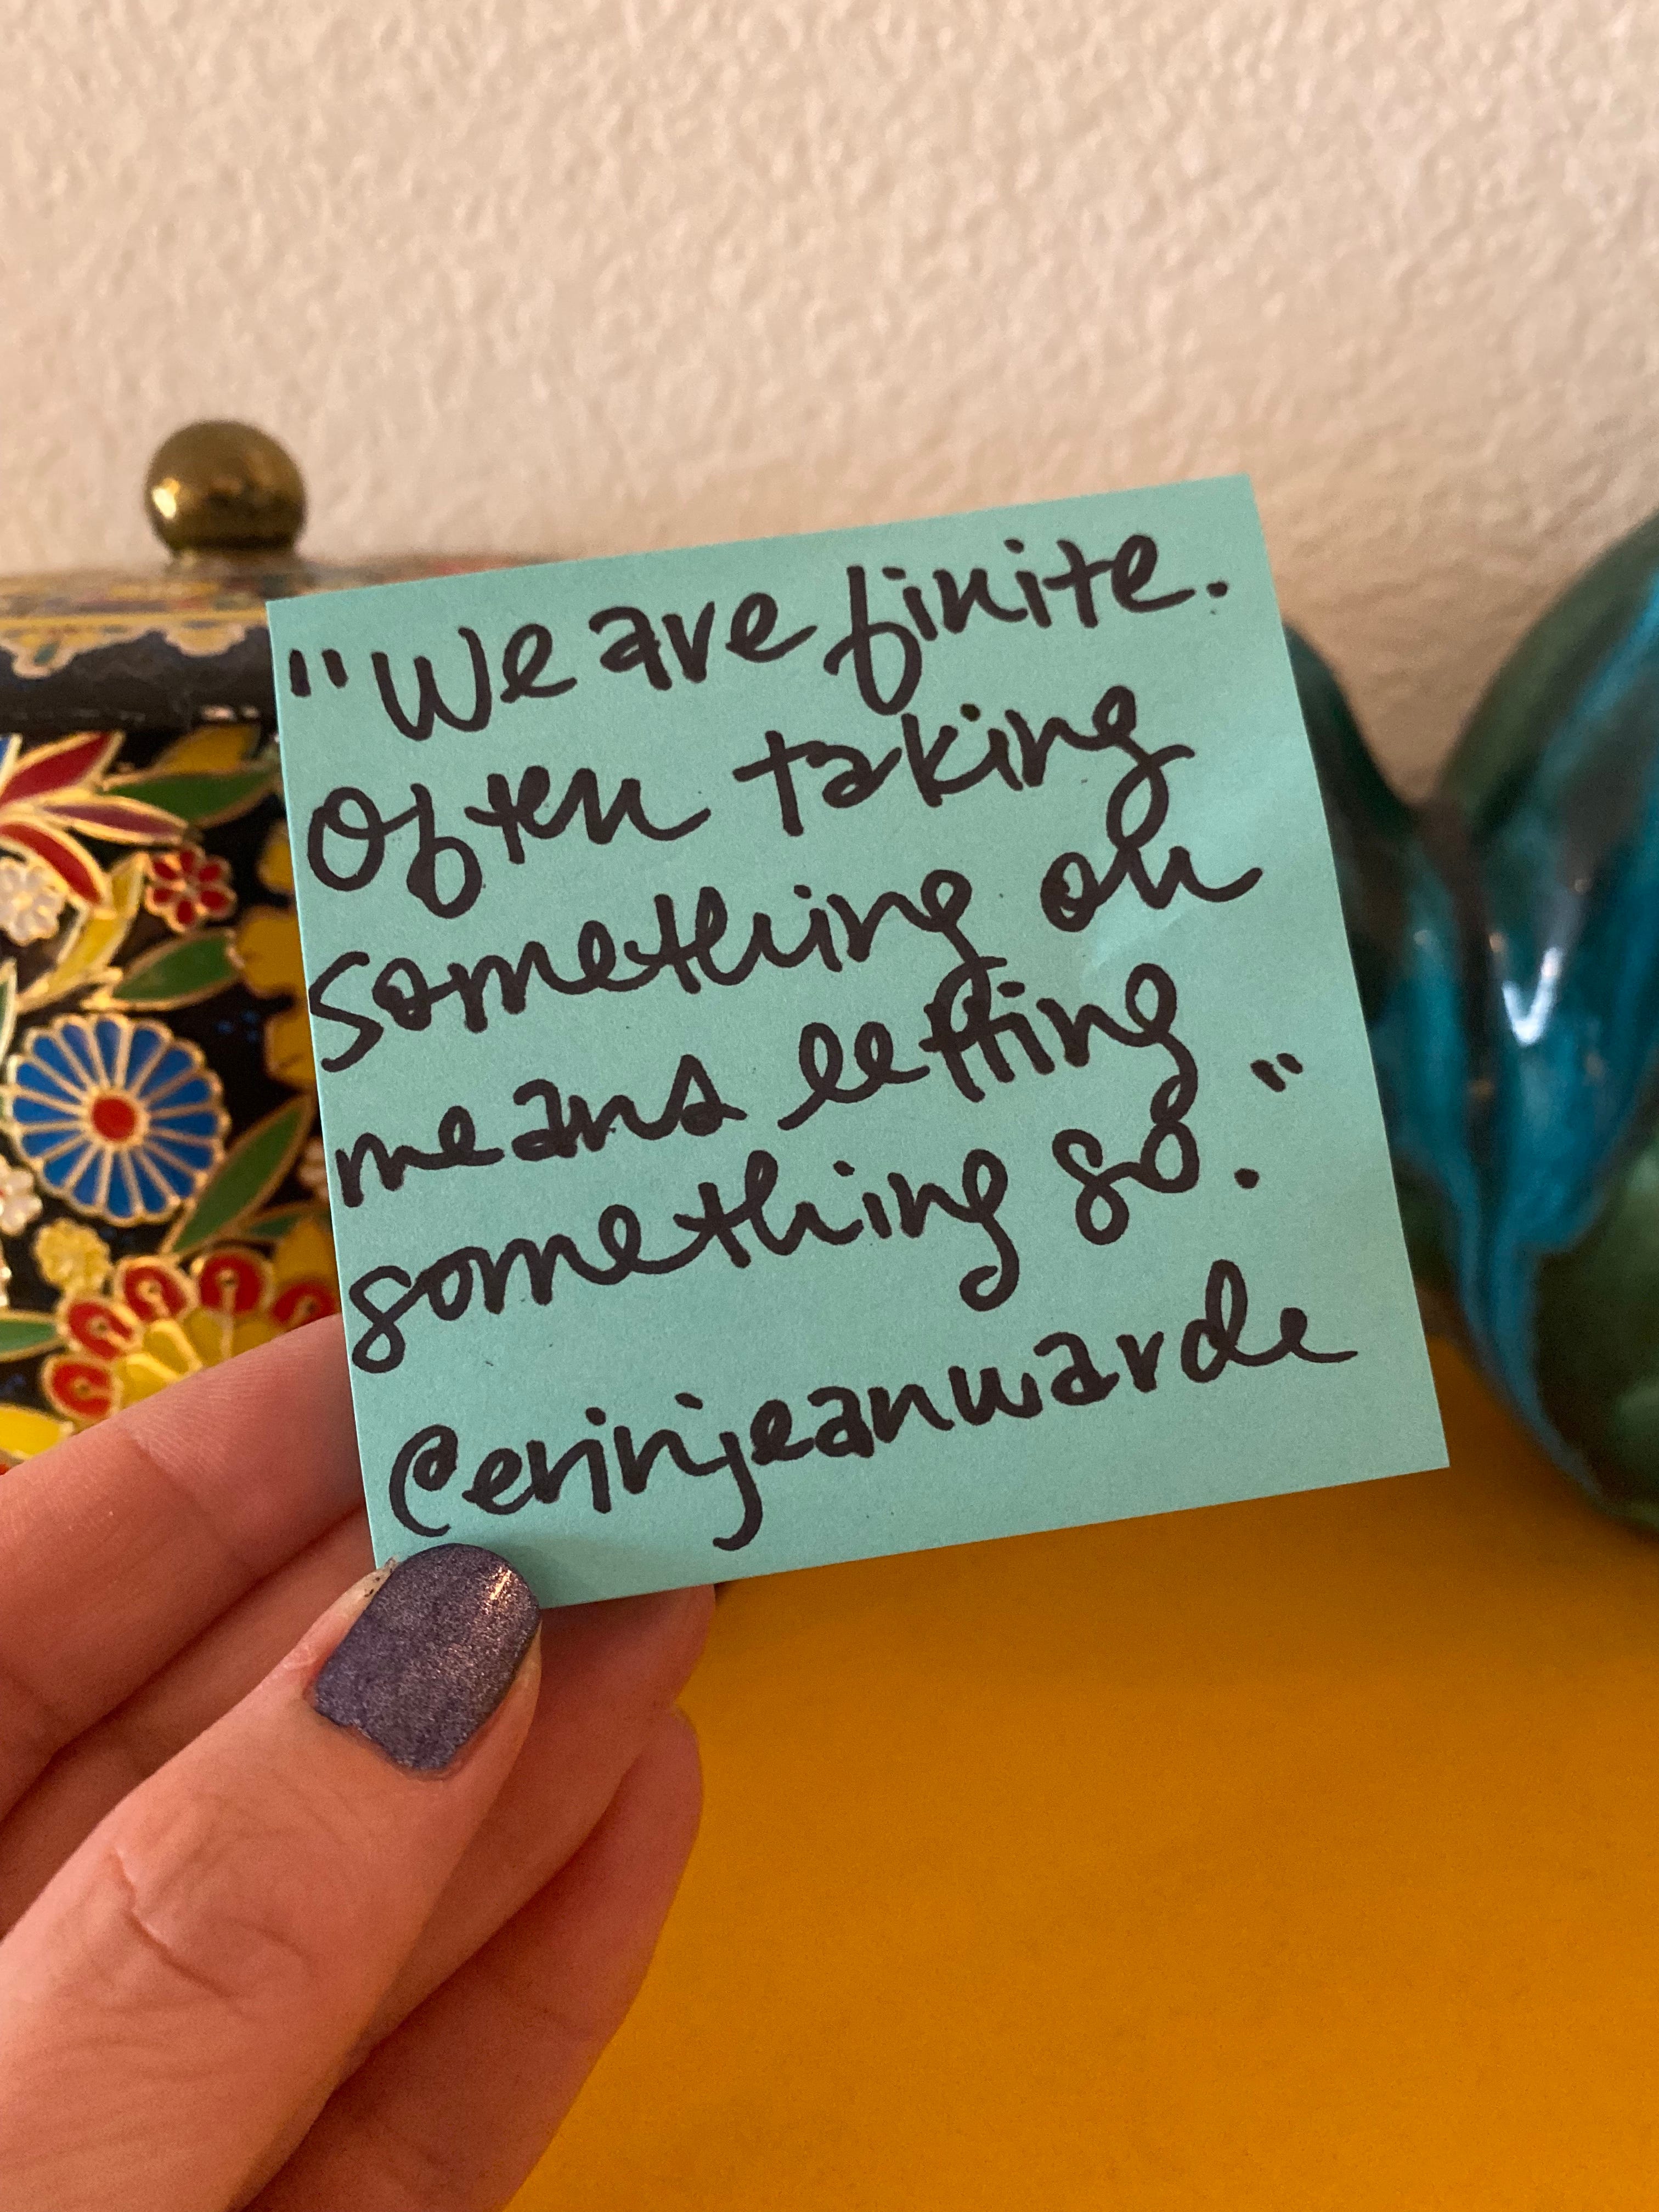 "We are finite.
Often taking
something on
means letting
something go."
@erinjeanwarde